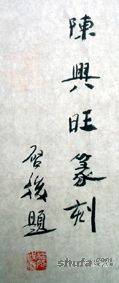 陳興旺篆刻
啓後題
shufa